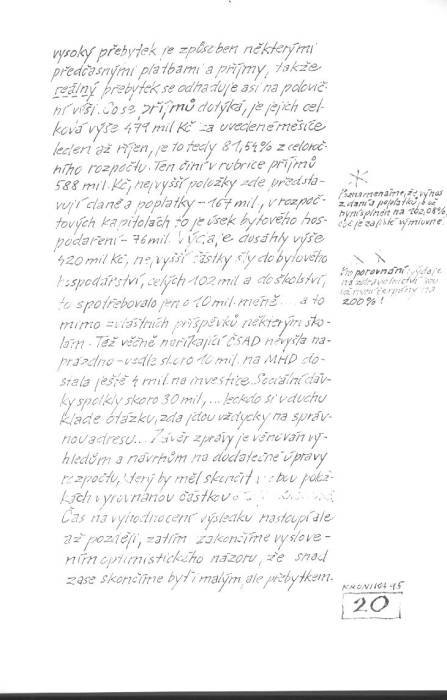 vysoký přebytek je způsoben některými
předčasnými platbami a příjmy, takže
reálný přebytek se odhaduje asi na polovič-
ní výši. Co se příjmů dotýká, je jejich cel-
ková výše 479 mil Kč za uvedené měsíce
leden až říjen, je to tedy 81,54% z celoroč-
ního rozpočtu. Ten činí v rubrice příjmů
588 mil. Kč, nejvyšší položky zde předsta-
vují daně a poplatky - 167 mil., v rozpoč-
tových kapitolách to je úsek bytového hos-
podaření - 76 mil. Výdaje dosáhly výše
420 mil Kč, nejvyšší částky šly do bytového
hospodářství, celých 102 mil a do školství,
to spotřebovalo jen o 10 mil. méně... a to
mimo zvláštních příspěvků některým ško-
lám. Též věčně naříkající ČSAD nevyšla na-
prázdno - vedle skoro 10 mil. na MHD do-
stala ještě 4 mil na investice. Sociální dáv-
ky spolkly skoro 30 mil, ... leckdo si v duchu
klade otázku, zda jdou vždycky na správ-
nou adresu... Závěr zprávy je věnován vý-
hledům a návrhům na dodatečné úpravy
rozpočtu, který by měl skončit v obou polož-
kách vyrovnanou částkou
Čas na vyhodnocení výsledku nastoupí ale
až později, zatím zakončíme vyslove-
ním optimistického názoru, že snad
zase skončíme byť i malým, ale přebytkem.
Poznamenáme, že výnos
z daní a poplatků, byl
nyní splněn na 102,08%,
což je zajisté výmluvné.
Pro porovnání: výdaje
na zdravotnictví jsou
čerpány na
200%!
KRONIKA 95
20